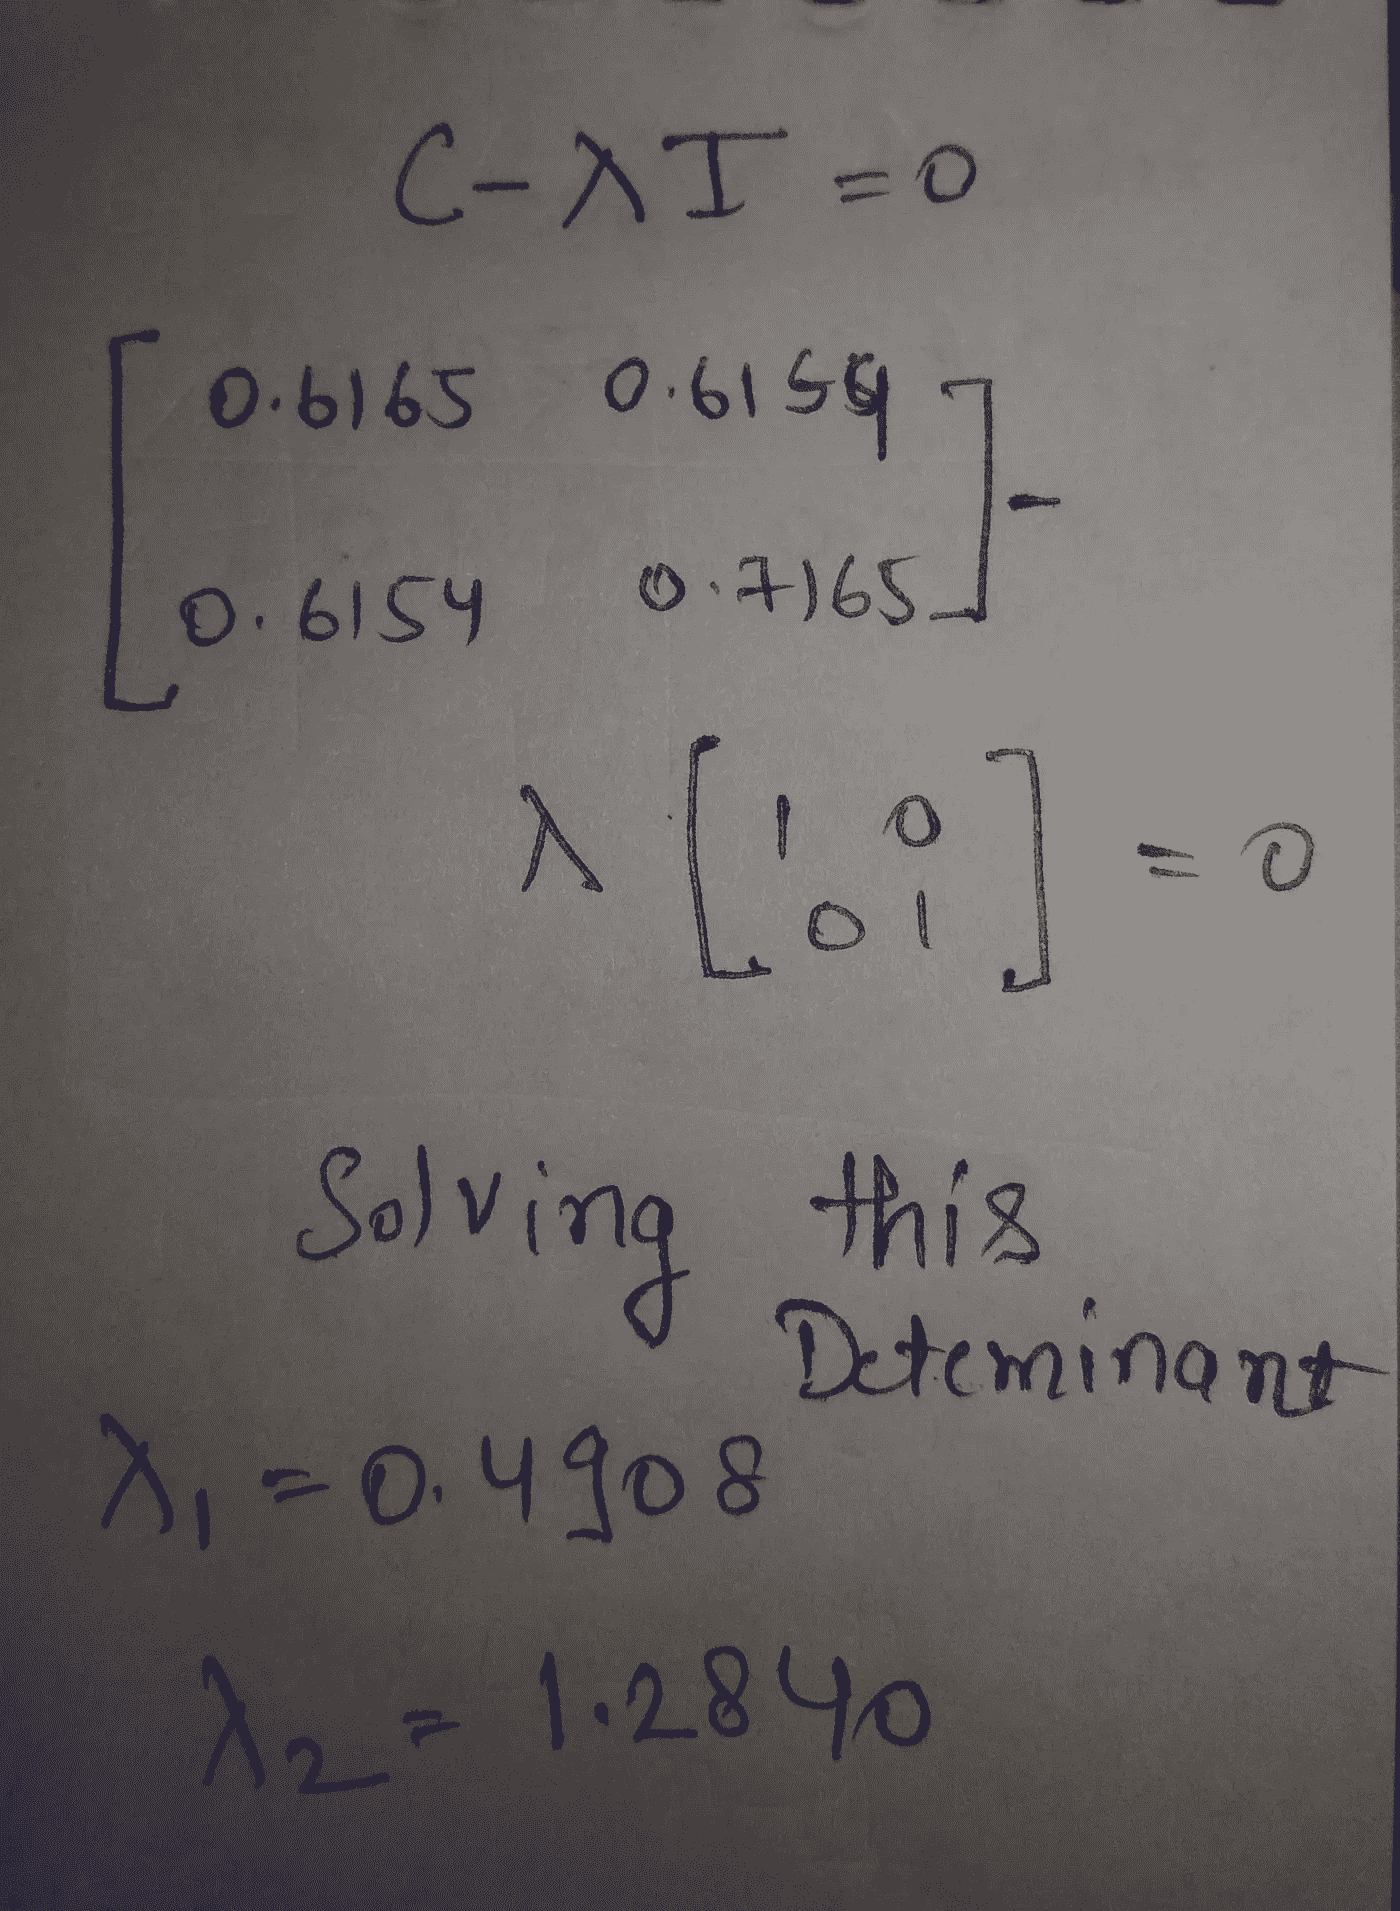 C-λI=0
0.6165 0.6154
0.6154 0.7165 -
λ 1 0 = 0
0 1
Solving this
Deteminant
λ₁ = 0.4908
λ₂ = 1.2840